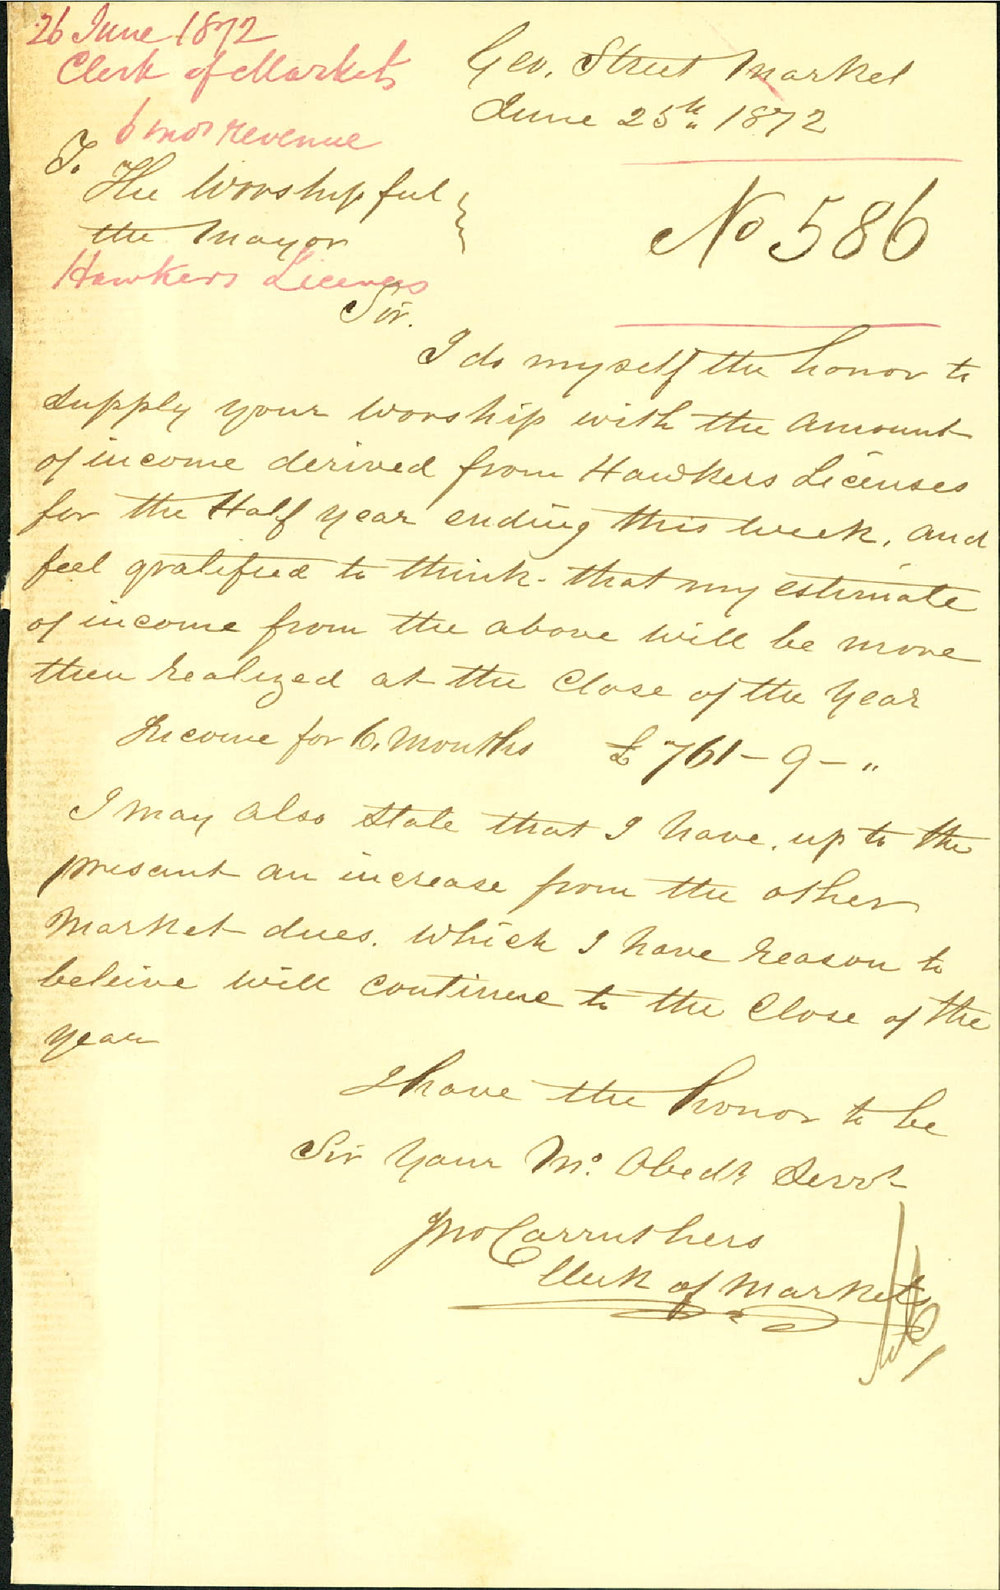 26 June 1872
Clerk of Markets
6 mos revenue
Geo. Street Market
June 25th. 1872
No 586
To.
The Worshipful
the Mayor
Hawkers Licenses
Sir.
I do myself the honor to
supply your worship with the amount
of income derived from Hawkers Licenses
for the Half year ending this week, and
feel gratified to think that my estimate
of income from the above will be more
then realized at the Close of the Year
Income for 6. Months £761-9-"
I may also state that I have, up to the
presant an increase from the other
Market dues. which I have reason to
beleive will continue to the Close of the
year
I have the honor to be
Sir Your Mo. Obedt Servt
Jno Carruthers
Clerk of Markets